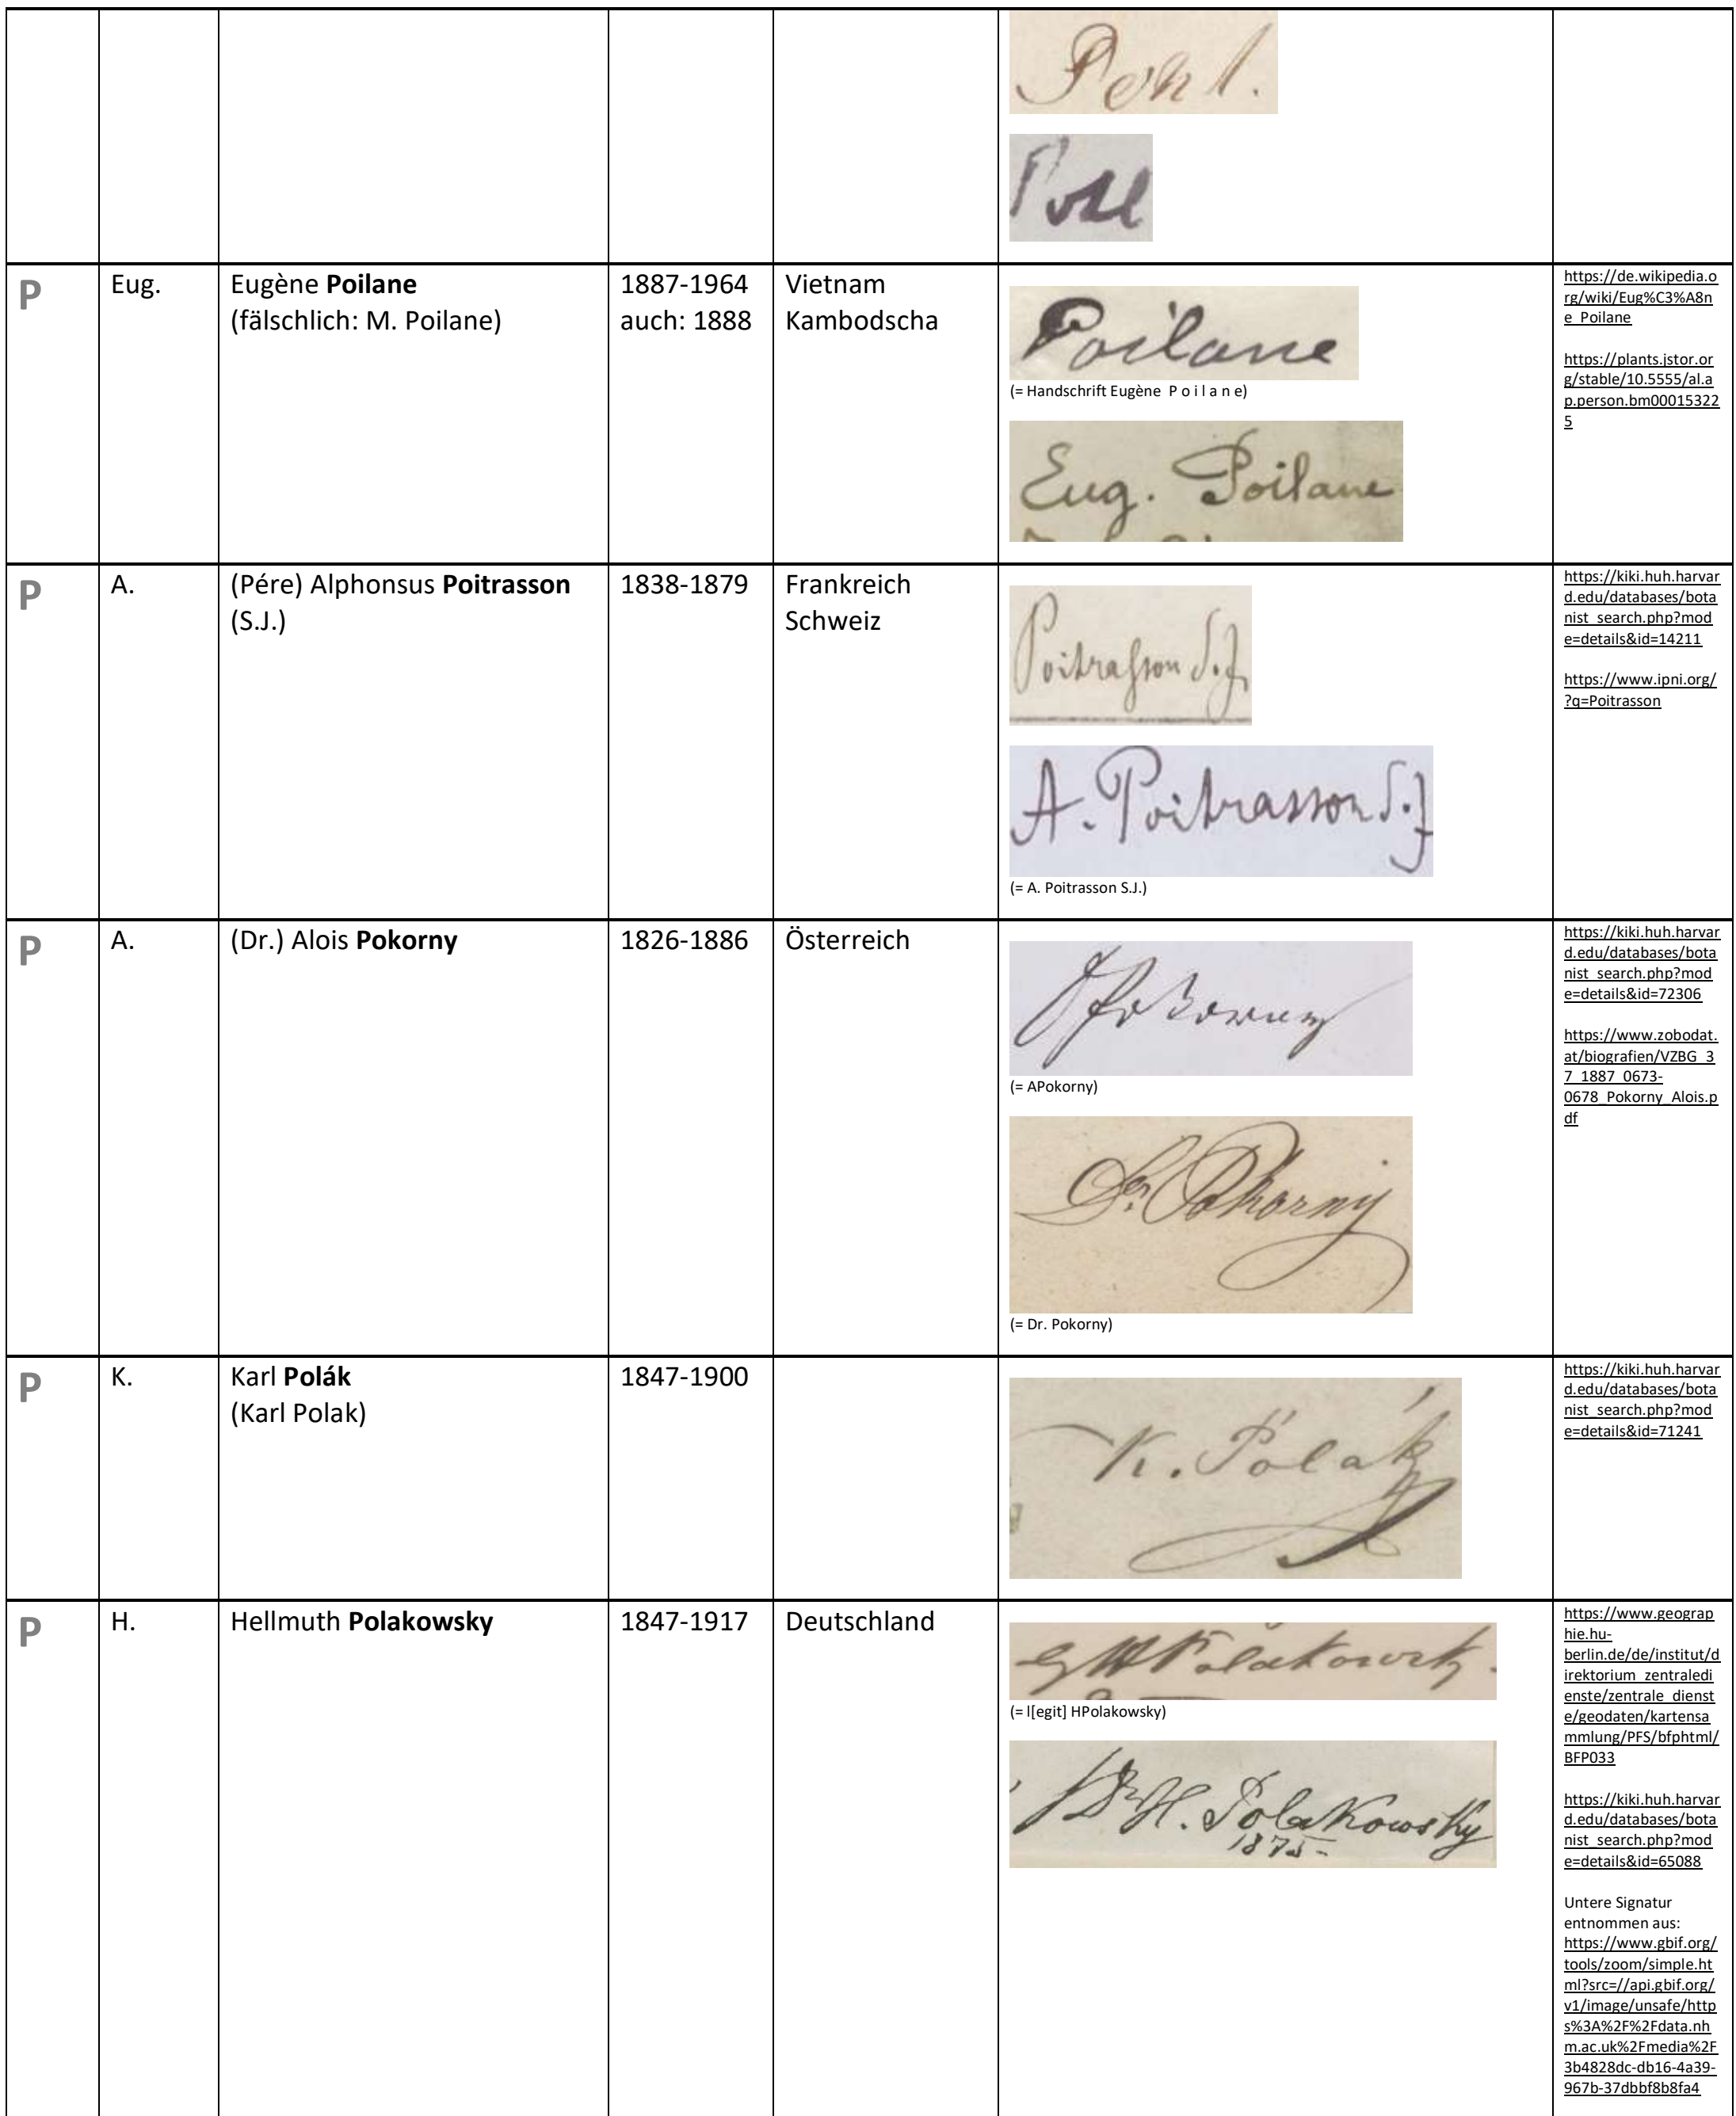 Pohl.
Pohl
P
Eug.
Eugène Poilane
(fälschlich: M. Poilane)
1887-1964
auch: 1888
Vietnam
Kambodscha
Poilane
(= Handschrift Eugène P o i l a n e)
Eug. Poilane
https://de.wikipedia.o
rg/wiki/Eug%C3%A8n
e_Poilane
https://plants.jstor.or
g/stable/10.5555/al.a
p.person.bm00015322
5
P
A.
(Pére) Alphonsus Poitrasson
(S.J.)
1838-1879
Frankreich
Schweiz
Poitrasson S.J.
A. Poitrasson S.J
(= A. Poitrasson S.J.)
https://kiki.huh.harvar
d.edu/databases/bota
nist_search.php?mod
e=details&id=14211
https://www.ipni.org/
?q=Poitrasson
P
A.
(Dr.) Alois Pokorny
1826-1886
Österreich
APokorny
(= APokorny)
Dr. Pokorny
(= Dr. Pokorny)
https://kiki.huh.harvar
d.edu/databases/bota
nist_search.php?mod
e=details&id=72306
https://www.zobodat.
at/biografien/VZBG_3
7_1887_0673-
0678_Pokorny_Alois.p
df
P
K.
Karl Polák
(Karl Polak)
1847-1900
K. Polák
https://kiki.huh.harvar
d.edu/databases/bota
nist_search.php?mod
e=details&id=71241
P
H.
Hellmuth Polakowsky
1847-1917
Deutschland
l HPolakowsky.
(= l[egit] HPolakowsky)
Dr H. Polakowsky
1875-
https://www.geograp
hie.hu-
berlin.de/de/institut/d
irektorium_zentraledi
enste/zentrale_dienst
e/geodaten/kartensa
mmlung/PFS/bfphtml/
BFP033
https://kiki.huh.harvar
d.edu/databases/bota
nist_search.php?mod
e=details&id=65088
Untere Signatur
entnommen aus:
https://www.gbif.org/
tools/zoom/simple.ht
ml?src=//api.gbif.org/
v1/image/unsafe/http
s%3A%2F%2Fdata.nh
m.ac.uk%2Fmedia%2F
3b4828dc-db16-4a39-
967b-37dbbf8b8fa4